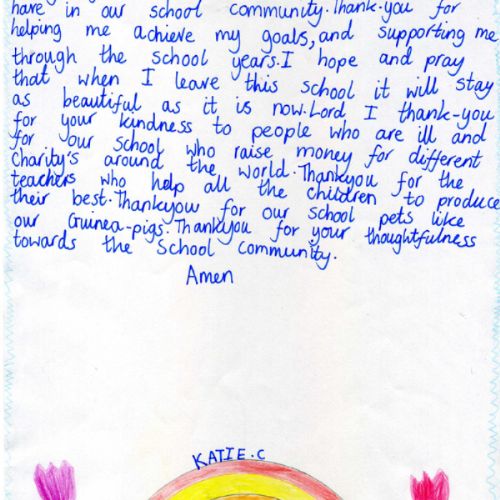 have in our school community.Thank-you for
helping me achieve my goals, and supporting me
through the school years.I hope and pray
that when I leave this school it will stay
as beautiful as it is now.Lord I thank-you
for your kindness to people who are ill and
for our school who raise money for different
Charity's around the world.Thankyou for the
teachers who help all the children to produce
their best.Thankyou for our school pets like
our Guinea-pigs.Thankyou for your thoughtfulness
towards the School community.
Amen
KATIE.C